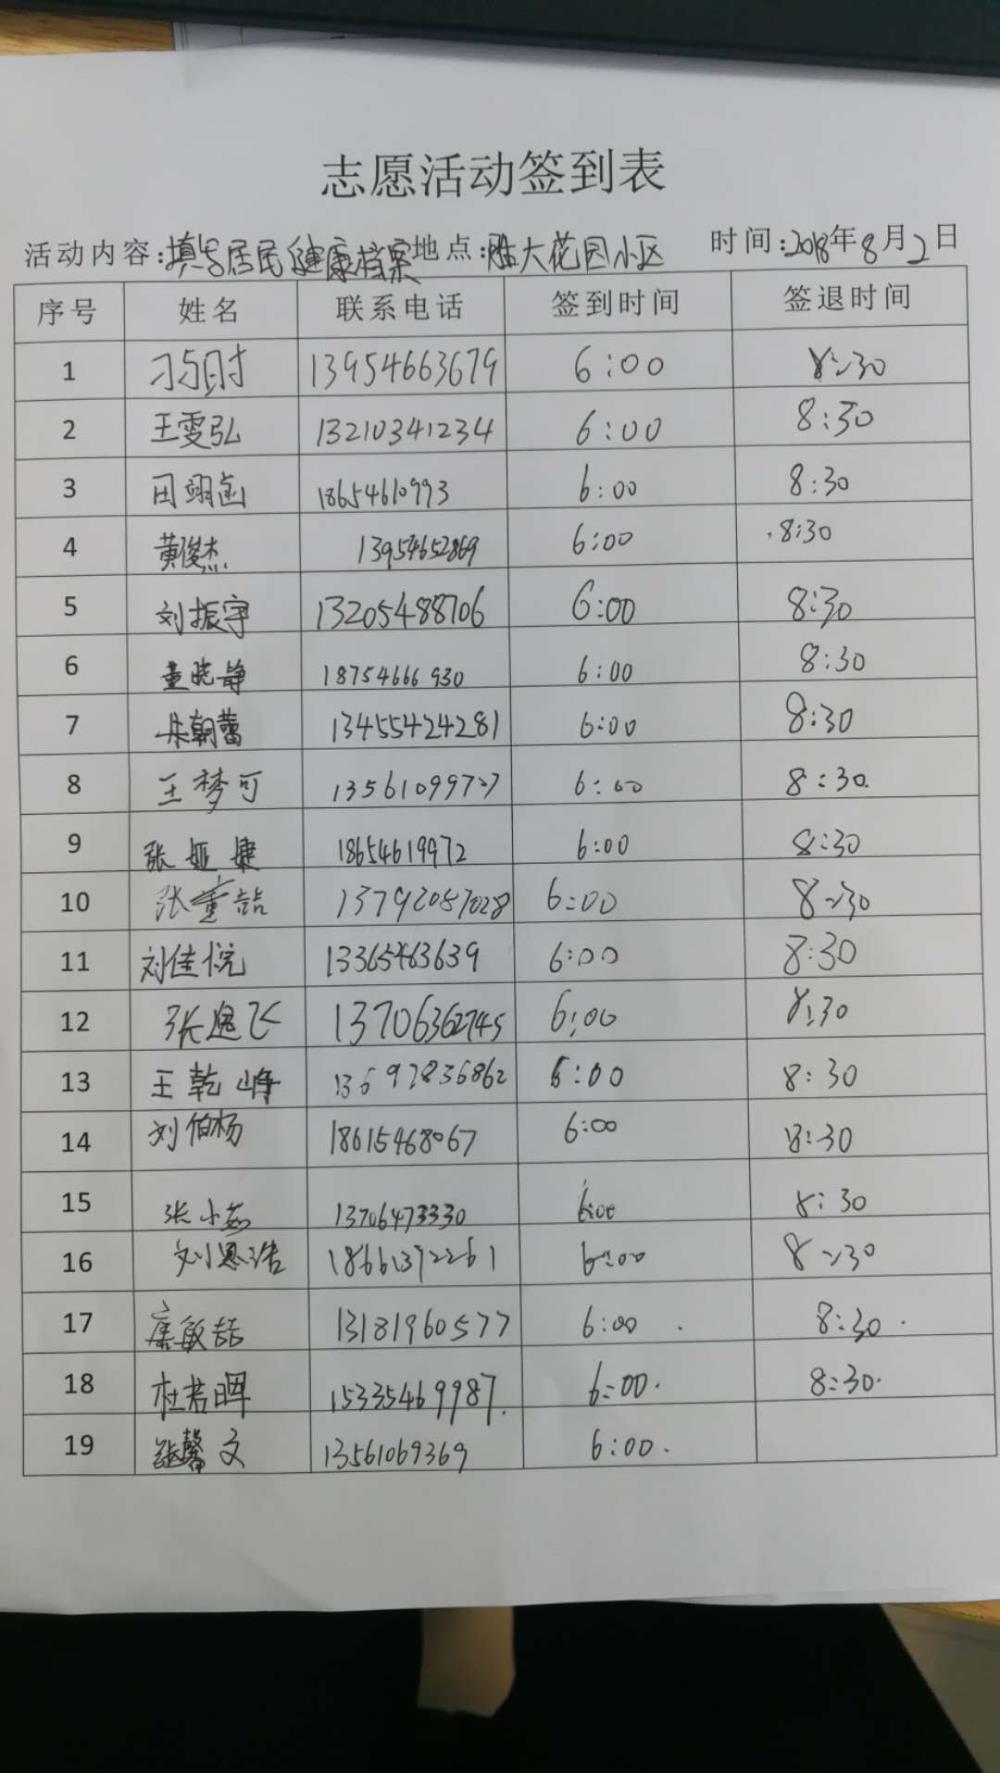 志愿活动签到表
活动内容:填写居民健康档案 地点:胜大花园小区 时间:2018年8月2日
序号 姓名 联系电话 签到时间 签退时间
1 刁与时 13954663679 6:00 8:30
2 王雯弘 13210341234 6:00 8:30
3 田翊函 18654610993 6:00 8:30
4 黄俊杰 13954652869 6:00 8:30
5 刘振宇 13205488706 6:00 8:30
6 董晓静 18754666930 6:00 8:30
7 朝蕾 13455424281 6:00 8:30
8 王梦可 6:00 8:30
9 张娅婕 18654619972 6:00 8:30
10 张董喆 13792087028 6:00 8:30
11 刘佳悦 13365463639 6:00 8:30
12 张逸飞 13706362745 6:00 8:30
13 王乾峥 13692836862 6:00 8:30
14 刘伯杨 18615468067 6:00 8:30
15 张小茹 13706473330 6:00 8:30
16 刘恩浩 18661392261 6:00 8:30
17 康敏喆 13181960577 6:00 8:30
18 杜若晖 15335469987 6:00 8:30
19 张馨文 13561069369 6:00